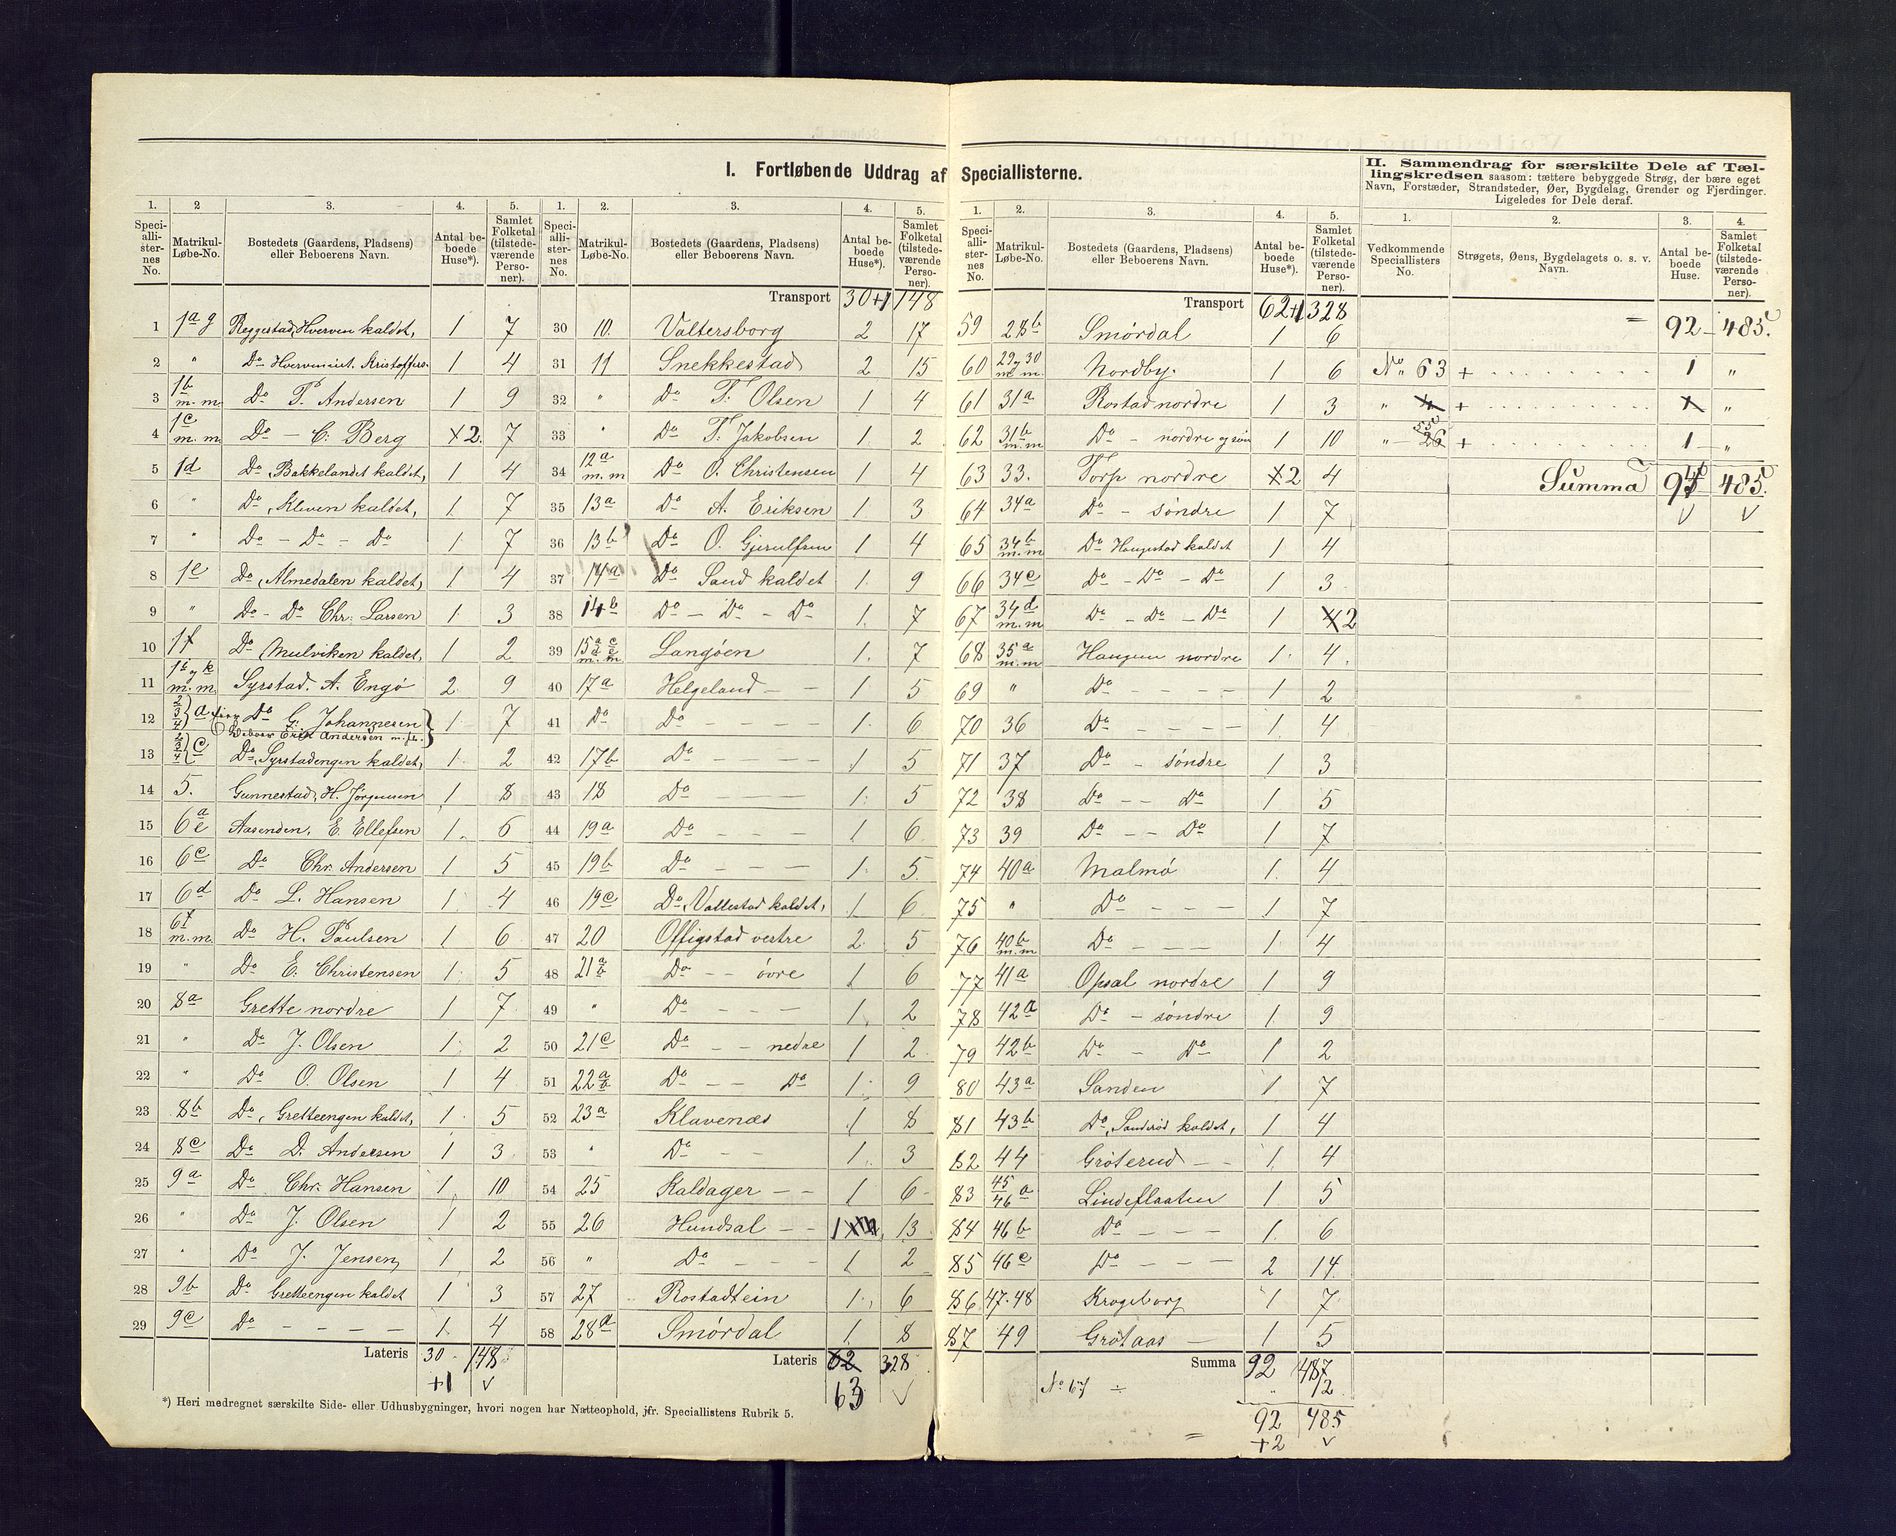 I. Fortløbende Uddrag af Speciallisterne.
II. Sammendrag for særskilte Dele af Tæl-
lingskredsen saasom: tættere bebyggede Strøg, der bære eget
Navn, Forstæder, Strandsteder, Øer, Bygdelag, Grender og Fjerdinger.
Ligeledes for Dele deraf.
1. 2 3. 4. 5.
Speciallisternes No. Matrikul-Løbe-No. Bostedets (Gaardens, Pladsens) eller Beboerens Navn. Antal beboede Huse*). Samlet Folketal (tilstedeværende Personer).
1 1a g Reggestad, Hverven kaldet, 1 7
2 " Do Hvervenint. Kristoffers. 1 4
3 1b m. m. Do T. Andersen 1 9
4 1c m. m. Do — C. Berg 2. 7
5 1d Do, Bakkelandet kaldet, 1 4
6 " Do, Kleven kaldet, 1 7
7 " Do — Do — Do 1 7
8 1e Do, Almedalen kaldet, 1 4
9 " Do - Do Chr. Larsen 1 3
10 1f Do Mulviken kaldet, 1 2
11 1h y k m. m. Syrstad. A. Engø 2 9
12 2 3 4 } a Do G. Johannesen 1 7
Beboer Erik Andersen m. fl.
13 2 3 4 } c Do, Syrstadengen kaldet, 1 2
14 5. Gunnestad, H. Jørgensen 1 8
15 6a e Aasenden, E. Ellefsen 1. 6
16 6c Do Chr. Andersen 1 5
17 6d Do L. Hansen 1 4
18 6f m. m. Do H. Paulsen 1 6
19 " Do E. Christensen 1 5
20 8a Grette nordre 1 7
21 " Do J. Olsen 1 2
22 " Do O. Olsen 1 4
23 8b Do, Gretteengen kaldet, 1 5
24 8c Do D. Andersen 1 3
25 9a Do Chr. Hansen 1 10
26 " Do J. Olsen 1 2
27 " Do J. Jensen 1 2
28 9b Do Gretteengen kaldet 1 3
29 9c Do — — — — 1. 4
Lateris 30 148
+1 v
*) Heri medregnet særskilte Side- eller Udhusbygninger, hvori nogen har Natteophold, jfr. Speciallistens Rubrik 5.
1. 2. 3. 4. 5.
Speciallisternes No. Matrikul-Løbe-No. Bostedets (Gaardens, Pladsens) eller Beboerens Navn. Antal beboede Huse*). Samlet Folketal (tilstedeværende Personer).
Transport 30+1 148
30 10. Valtersborg 2 17
31 11 Snekkestad 2 15
32 " Do T. Olsen 1 4
33 " Do T. Jakobsen 1. 2
34 12a m. m Do O. Christensen 1 4
35 13a Do A. Eriksen 1 3
36 13b Do O. Gjerulfsen 1 4
37 14a Do Sand kaldet 1. 9
38 14b Do — Do - Do 1. 7
39 15a c d e m. m. Langøen 1. 7
40 17a Helgeland — — 1 5
41 Do Do — — — — 1. 6
42 17b Do — — — 1 5
43 18 Do — — 1. 5
44 19a Do — — — 1 6
45 19b Do — — — 1. 5
46 19c Do, Vallestad kaldet, 1 6
47 20 Offigstad vestre 2. 5
48 21a b Do — — øvre 1 6
49 " Do — — — 1. 2
50 21c Do — — nedre 1 2
51 22a b Do — — Do 1. 9
52 23a Klavenæs 1 8
53 " Do — — 1. 3
54 25 Kaldager — — 1 6
55 26 Hundsal — — 1 13
56 " Do — — — 1 2
57 27 Rostadtein 1. 6
58 28a Smørdal 1. 8
Lateris 62 328
63 v
1. 2. 3. 4. 5.
Speciallisternes No. Matrikul-Løbe-No. Bostedets (Gaardens, Pladsens) eller Beboerens Navn. Antal beboede Huse*). Samlet Folketal (tilstedeværende Personer).
Transport 62+1 328
59 28b Smørdal 1 6
60 29 y 30 m. m. Nordby. 1 6
61 31a Rostad nordre 1 3
62 31b m. m Do — nordre og søn 1 10
63 33. Torp nordre 2 4
64 34a Do — søndre 1 7
65 34b m. m Do Haugstad kaldet 1 4
66 34c Do — Do — Do 1 3
67 34d m. m Do — Do — Do 1 2
68 35a m. m Haugen nordre 1. 4.
69 " Do — — — — 1 2
70 36 Do — — — — 1 4
71 37 Do — søndre 1 3
72 38 Do — — Do 1 5
73 39 Do — — Do 1 7
74 40a Malmø 1. 4
75 " Do — — — 1 7
76 40b m. m Do — — — 1 4
77 41a Opsal nordre 1 9
78 42a Do — søndre 1 9
79 42b Do — Do 1 2
80 43a Sanden 1 7
81 43b Do, Sanderød kaldet, 1 4
82 44 Grøterud — — 1. 4
83 45 46 a Lindeflaaten 1 5
84 46b Do — — — 1. 6
85 46c Do — — — 2 14
86 47-48 Krogeborg 1 7
87 49 Grøtaas — 1 5
Summa 92 487
No 67 ÷ " 2
92 485
+2 v
1. 2. 3. 4.
Vedkommende Speciallisters No. Strøgets, Øens, Bygdelagets o. s. v. Navn. Antal beboede Huse. Samlet Folketal (tilstedeværende Personer).
= 92 — 485.
No 63 + 1 "
" 4 + 1 "
" 55 26 + 1 "
Summa 94 485.
v v